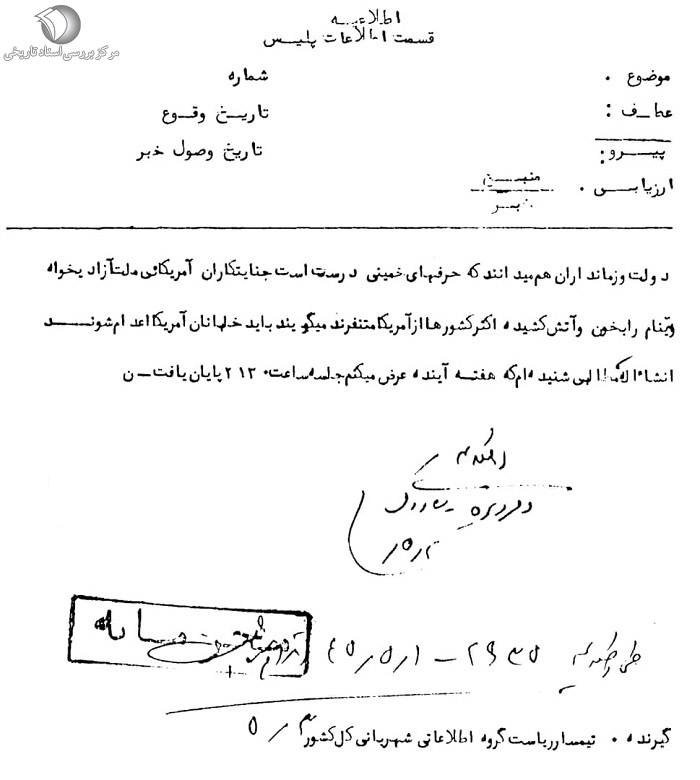 مرکز بررسی اسناد تاریخی
اطلاعیـــه
قسمت اطلاعات پلیـس
موضوع .
شماره
عطـف :
تاریـخ وقـوع
پیـــرو:
تاریخ وصول خبر
ارزیابـی .
منبـــع
خبـر
دولت وزمامداران هم میدانند که حرفهای خمینی درست است جنایتکاران آمریکائی ملت آزادیخواه
ویتنام رابخون وآتش کشیده اکثرکشورهاازآمریکامتنفرند میگویند باید خلبانان آمریکااعدام شونـــد
انشاءاله مطالبی شنیده ام که هفته آینده عرض میکنم جلسه ساعت ۲۱۳۰ پایان یافت ـ ن
۲۹۳۵ ـ ۴۵/۵/۱
گیرنده . تیمسارریاست گروه اطلاعاتی شهربانی کل کشور